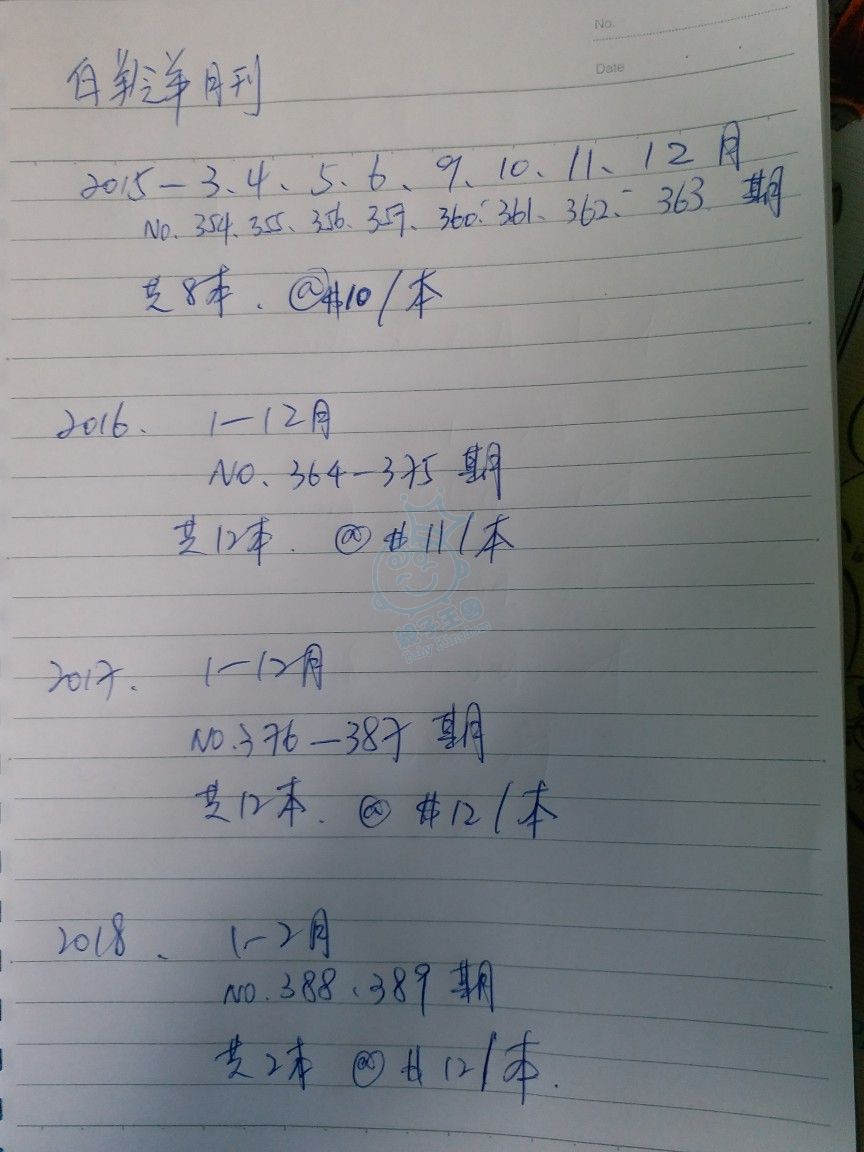 No.
Date
月刊
2015－3、4、5、6、9、10、11、12月
No. 354、355、356、357、360、361、362、363 期
共8本. @$10/本
2016. 1－12月
NO. 364－375 期
共12本. @ $11/本
親子王國
Baby Kingdom
2017. 1－12月
NO.376－387 期
共12本. @ $12/本
2018. 1－2月
NO.388、389 期
共2本 @ $12/本.